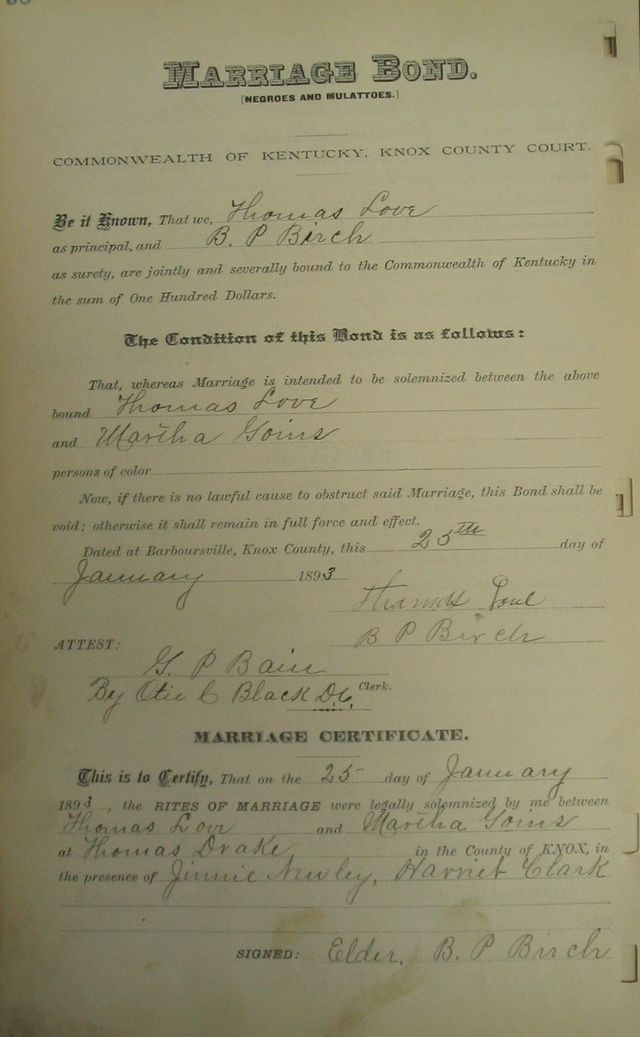 MARRIAGE BOND.
[NEGROES AND MULATTOES.]
COMMONWEALTH OF KENTUCKY, KNOX COUNTY COURT.
Be it Known, That we, Thomas Love
as principal, and B. P Birch
as surety, are jointly and severally bound to the Commonwealth of Kentucky in
the sum of One Hundred Dollars.
The Condition of this Bond is as follows:
That, whereas Marriage is intended to be solemnized between the above
bound Thomas Love
and Martha Goins
persons of color
Now, if there is no lawful cause to obstruct said Marriage, this Bond shall be
void; otherwise it shall remain in full force and effect.
Dated at Barboursville, Knox County, this 25th day of
January 1893
B P Birch
ATTEST:
G. P Bain
By Black D.C. Clerk.
MARRIAGE CERTIFICATE.
This is to Certify, That on the 25 day of January
1893, the RITES OF MARRIAGE were legally solemnized by me between
Thomas Love and Martha Goins
at Thomas Drake in the County of KNOX, in
the presence of Jinnie Newley, Harriet Clark
SIGNED: Elder, B. P Birch